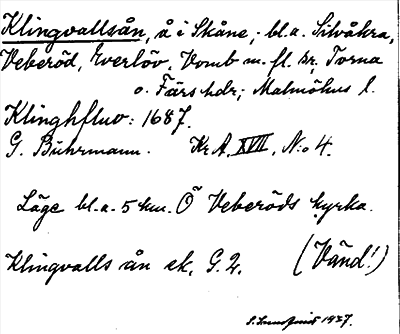 Klingvallsån, å i Skåne; bl.a. Silvåkra,
Veberöd, Everlöv, Vomb m. fl. sr. Torna
o. Färs hdr; Malmöhus l.
Klinghfluv: 1687.
G. Buhrmann. Kr A, XVII, N:o 4.
Läge bl.a. 5 km. Ö Veberöds kyrka.
Klingvalls ån ek. G. 2. (Vänd!)
1927.